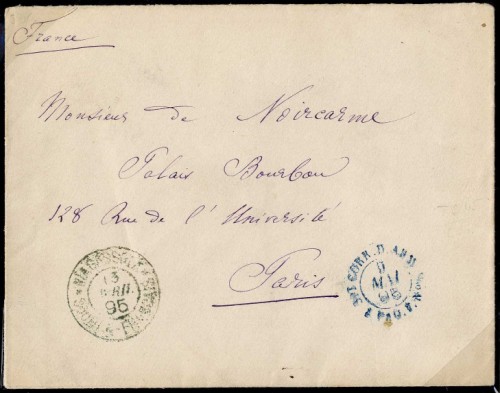 France
Monsieur de Noircarme
Palais Bourbon
128 Rue de l'Université
Paris
13
AVRIL
95
CORR. D. ARM
5
MAI
95